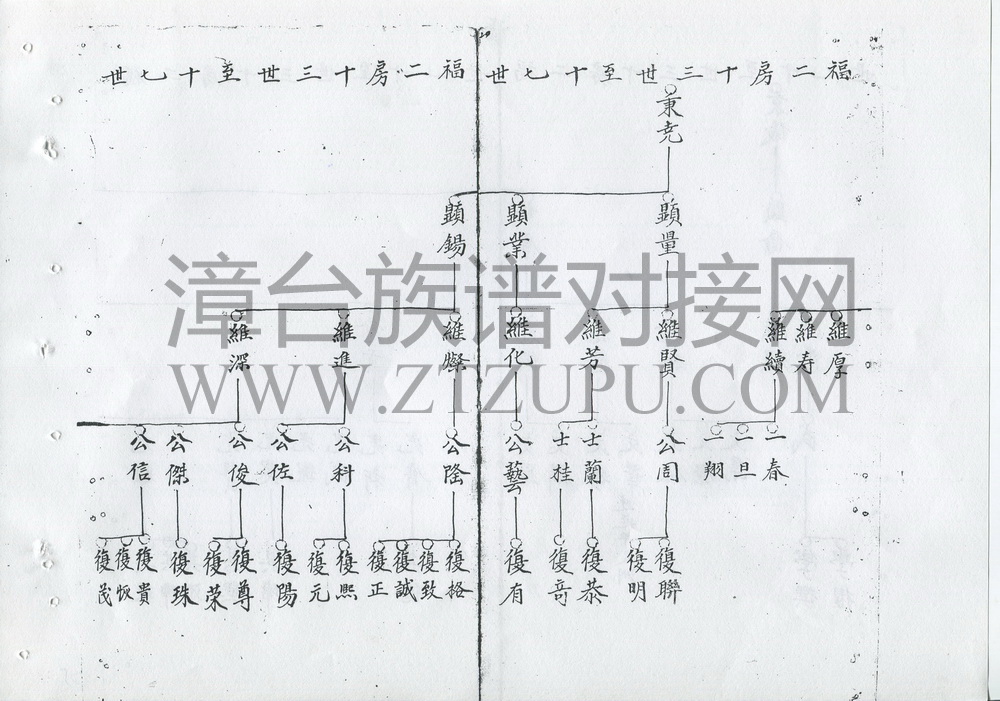 福二房十三世至十七世
福二房十三世至十七世
秉尭
顕量
顕業
顕錫
維厚
維寿
維續
維賢
維芳
維化
維燦
維進
維深
一春
二旦
二翔
公周
士蘭
士桂
公藝
公隆
公科
公佐
公俊
公傑
公信
復聯
復明
復恭
復竒
復有
復格
復致
復誠
復正
復熙
復元
復陽
復尊
復荣
復珠
復貴
復恆
復茂
漳台族谱对接网
WWW.ZTZUPU.COM